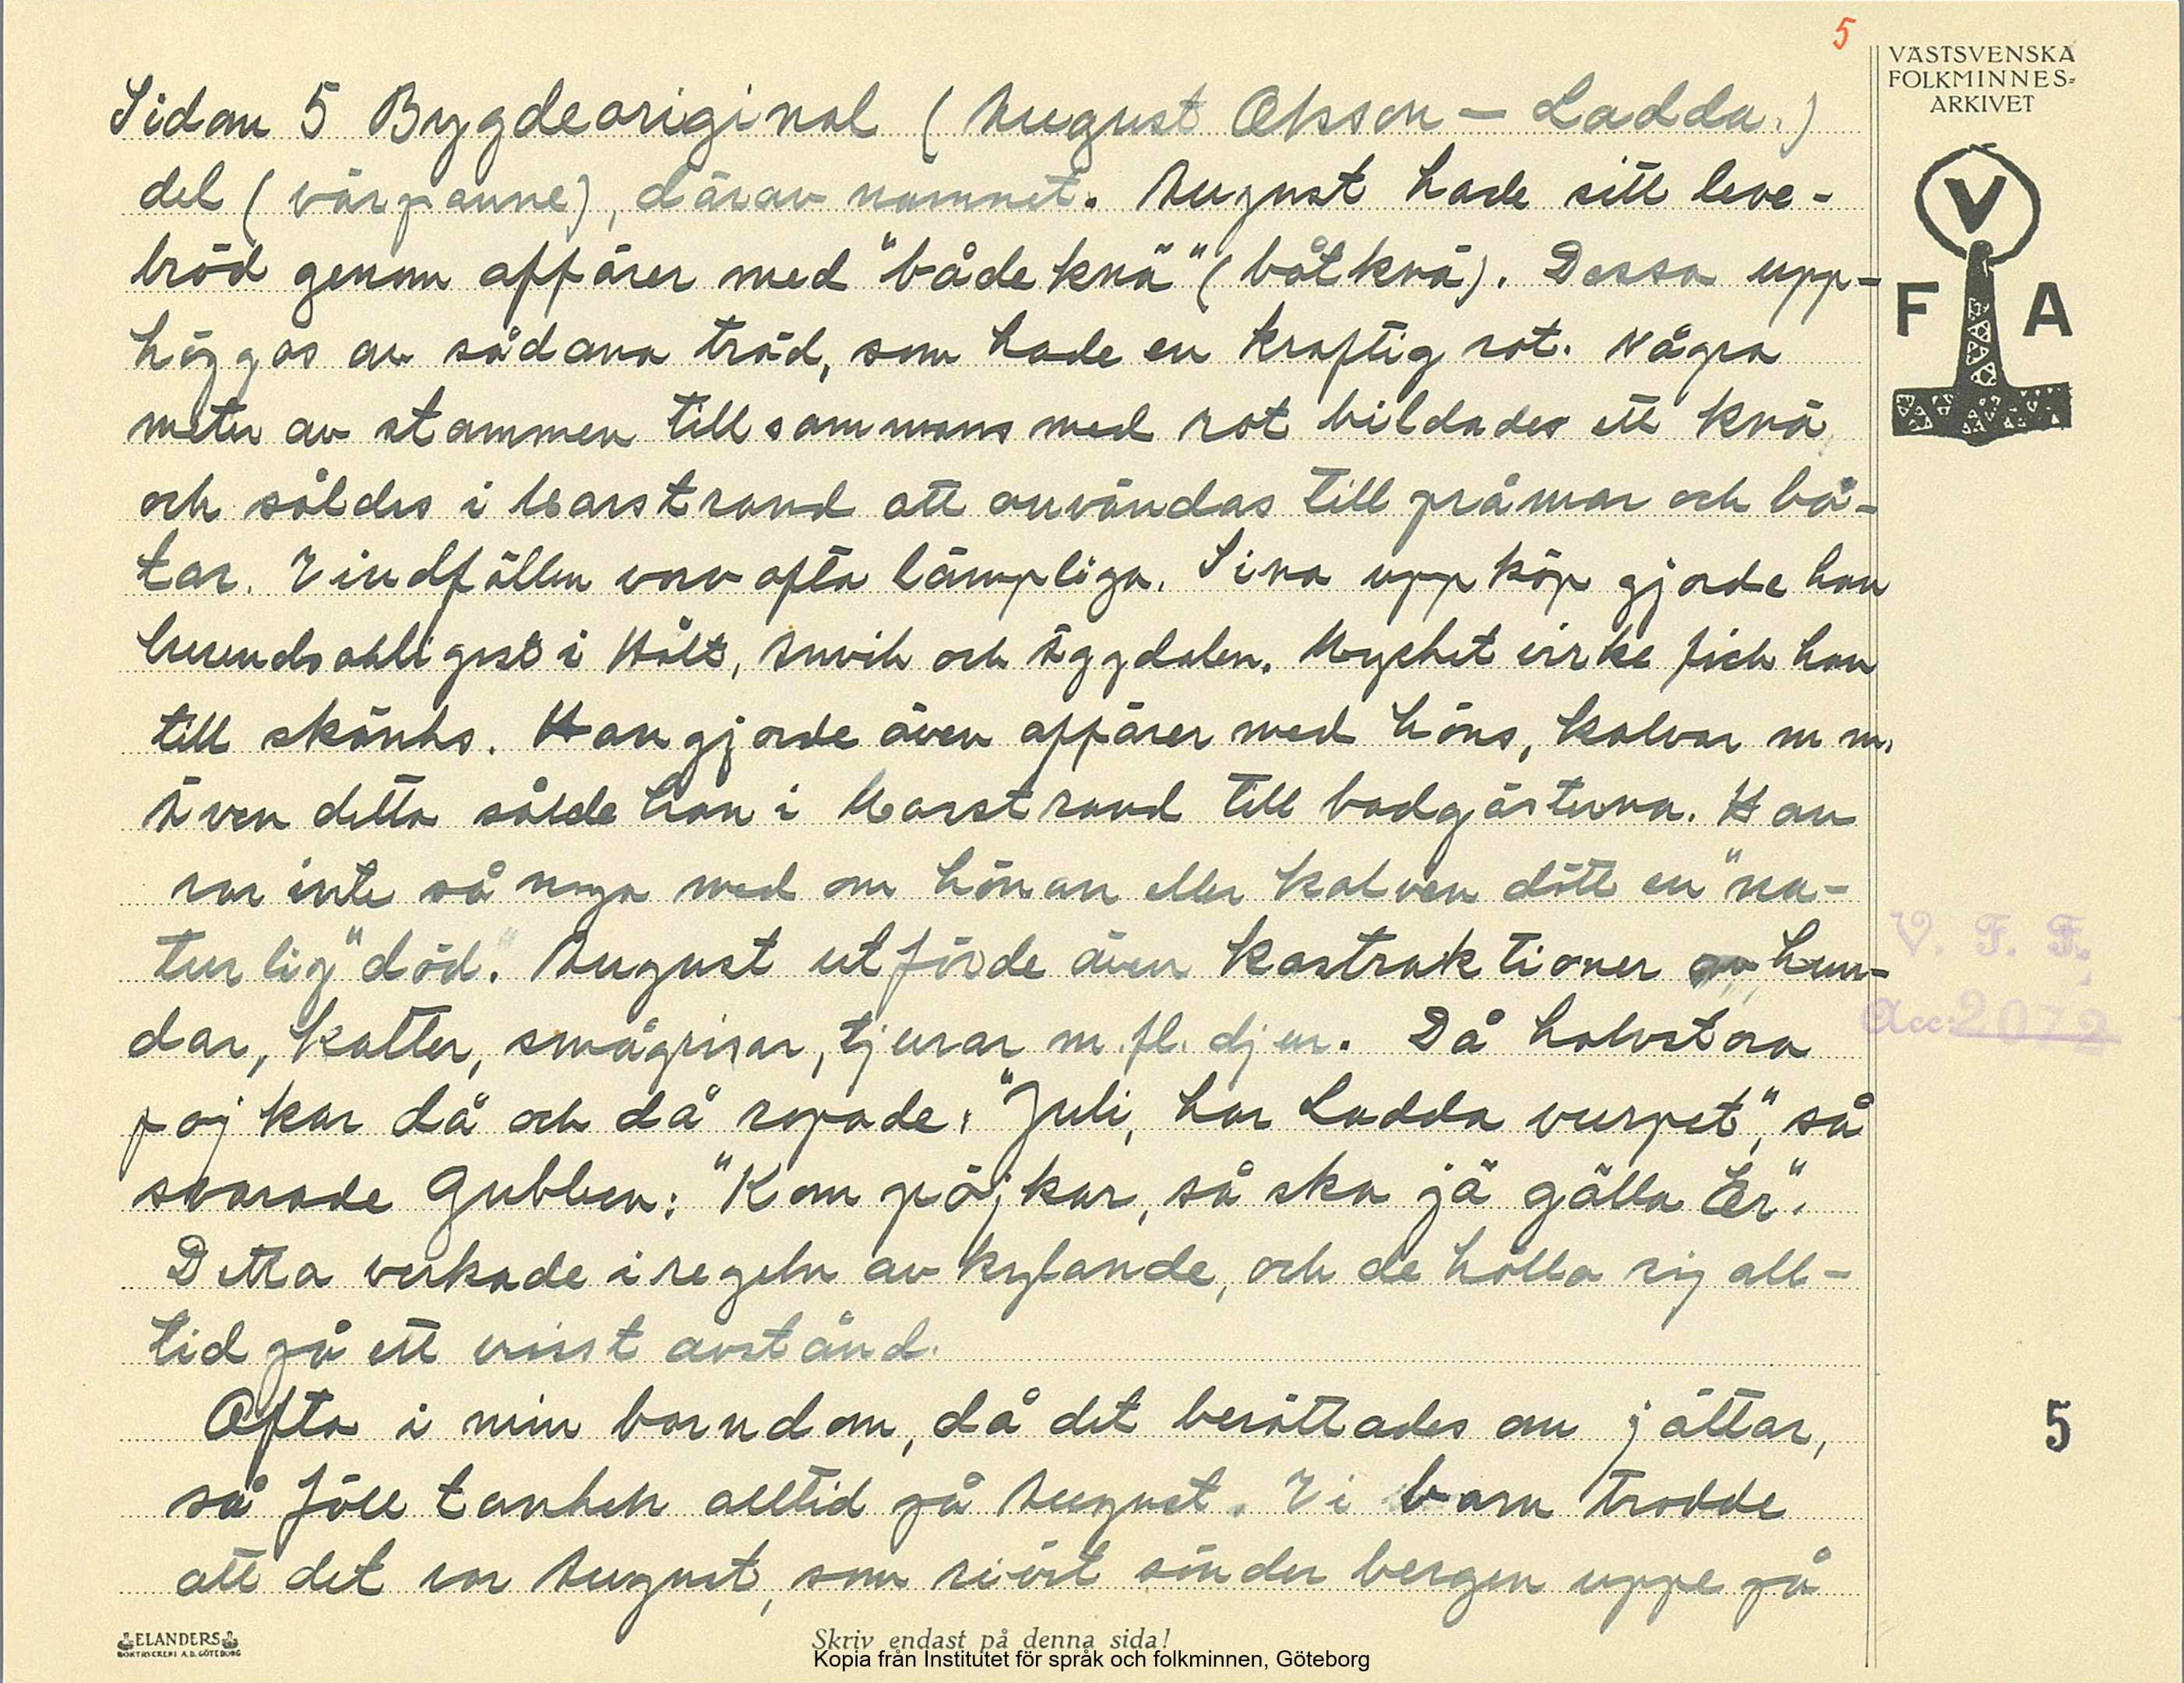 5
Sidan 5 Bygdeoriginal (August Olsson – Ladda.)
del (värpanne), därav namnet. August hade sitt leve-
bröd genom affärer med "bådeknä" (båtknä). Dessa upp-
höggos av sådana träd, som hade en kraftig rot. Några
meter av stammen tillsammans med rot bildades ett knä
och såldes i Marstrand att användas till pråmar och bå-
tar. Vindfällen voro ofta lämpliga. Sina uppköp gjorde han
huvudsakligast i Hålt, Anvik och Äggdalen. Mycket virke fick han
till skänks. Han gjorde även affärer med höns, kalvar m m.
Även detta sålde han i Marstrand till badgästerna. Han
var inte så noga med om hönan eller kalven dött en "na-
turlig" död." August utförde även kastraktioner av hun-
dar, katter, smågrisar, tjurar m.fl. djur. Då halvstora
pojkar då och då ropade: "Juli, har Ladda vurpet", så
svarade Gubben: "Kom pöjkar, så ska jä gälla Er".
Detta verkade i regeln avkylande, och de hölla sig all-
tid på ett visst avstånd.
Ofta i min barndom, då det berättades om jättar,
så föll tanken alltid på August. Vi barn trodde
att det var August, som rivit sönder bergen uppe på
VÄSTSVENSKA
FOLKMINNES=
ARKIVET
V
F A
V. F. F.
Acc: 2072
5
ELANDERS
BOKTRYCKERI A.B. GÖTEBORG
Skriv endast på denna sida!
Kopia från Institutet för språk och folkminnen, Göteborg